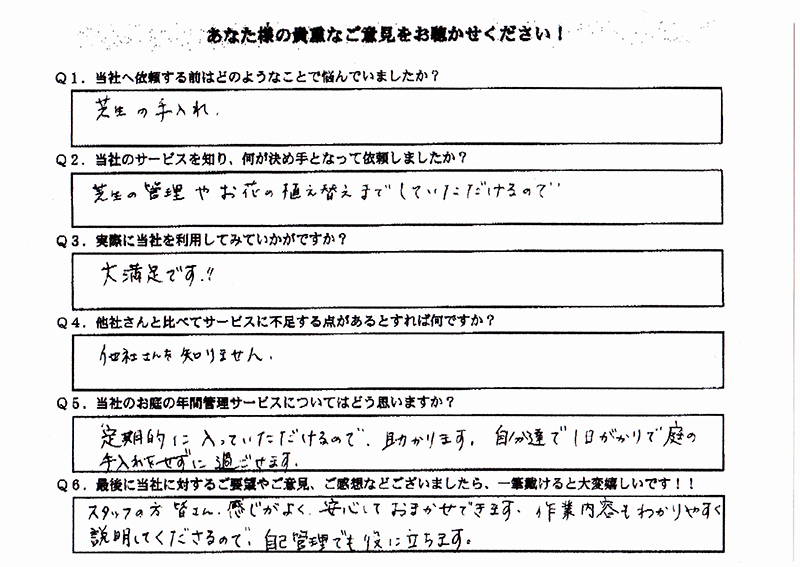 あなた様の貴重なご意見をお聴かせください！
Ｑ１．当社へ依頼する前はどのようなことで悩んでいましたか？
芝生の手入れ.
Ｑ２．当社のサービスを知り、何が決め手となって依頼しましたか？
芝生の管理やお花の植え替えまでしていただけるので
Ｑ３．実際に当社を利用してみていかがですか？
大満足です!!
Ｑ４．他社さんと比べてサービスに不足する点があるとすれば何ですか？
他社さんを知りません.
Ｑ５．当社のお庭の年間管理サービスについてはどう思いますか？
定期的に入っていただけるので、助かります。自分達で1日がかりで庭の
手入れをせずに過ごせます.
Ｑ６．最後に当社に対するご要望やご意見、ご感想などございましたら、一筆戴けると大変嬉しいです！！
スタッフの方皆さん、感じがよく、安心しておまかせできます、作業内容もわかりやすく
説明してくださるので、自己管理でも役に立ちます。